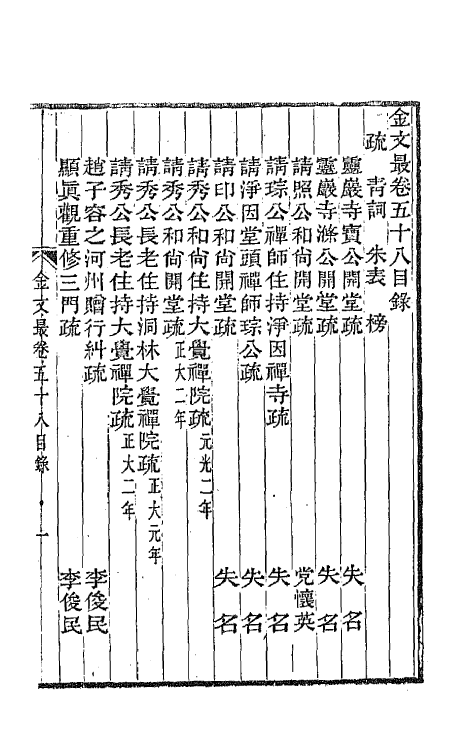 金文最卷五十八目錄
疏　青詞　朱表　榜
靈巖寺寶公開堂疏　失名
靈巖寺滌公開堂疏　失名
請照公和尚開堂疏　党懷英
請琮公禪師住持淨因禪寺疏　失名
請淨因堂頭禪師琮公疏　失名
請印公和尚開堂疏　失名
請秀公和尚住持大覺禪院疏元光二年
請秀公和尚開堂疏正大二年
請秀公長老住持洞林大覺禪院疏正大元年
請秀公長老住持大覺禪院疏正大二年
趙子容之河州贈行糾疏　李俊民
顯眞觀重修三門疏　李俊民
金文最卷五十八目錄　一